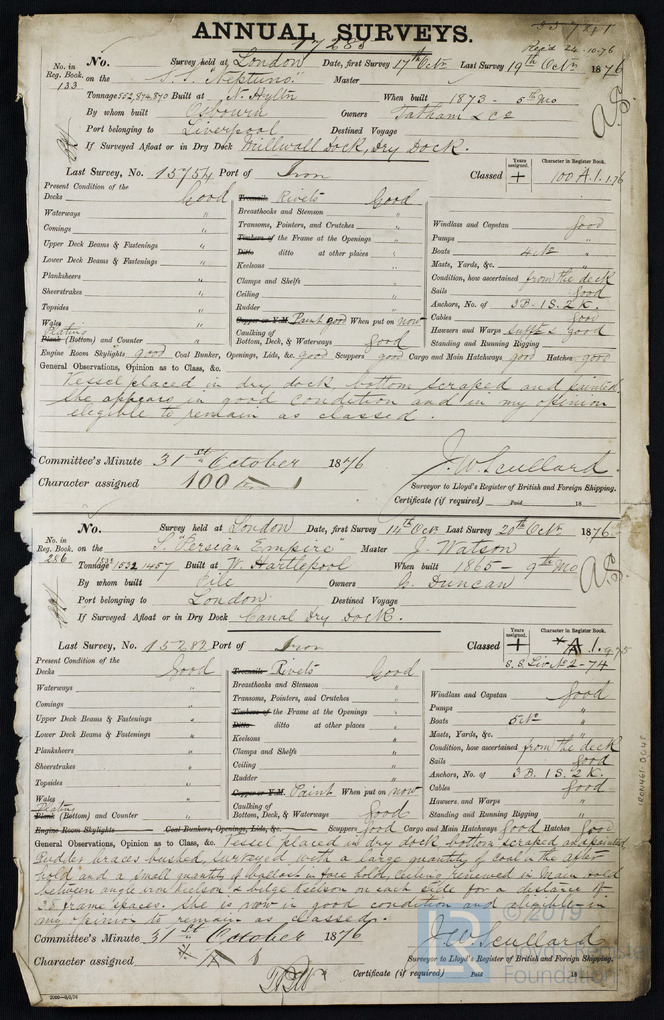 ANNUAL SURVEYS.
17283
Rec'd 24-10-76
No. in Reg. Book. 133
No. Survey held at London Date, first Survey 17th Octr. Last Survey 19th Octr. 1876
on the S.S. "Neptuno" Master
Tonnage 552, 874, 870 Built at N. Hylton When built 1873 - 5th Mo
By whom built Osbourn Owners Tatham & Co
Port belonging to Liverpool Destined Voyage
If Surveyed Afloat or in Dry Dock Millwall Dock, Dry Dock.
Last Survey, No. 15754 Port of Iron Classed
Years assigned. Character in Register Book.
+ 100 A.1. 1.76
Present Condition of the
Decks Good
Waterways "
Comings "
Upper Deck Beams & Fastenings "
Lower Deck Beams & Fastenings "
Planksheers "
Sheerstrakes "
Topsides "
Wales "
Plating
Plank (Bottom) and Counter "
Treenails Rivets Good
Breasthooks and Stemson "
Transoms, Pointers, and Crutches "
Timbers of the Frame at the Openings "
Ditto ditto at other places "
Keelsons "
Clamps and Shelfs "
Ceiling "
Rudder "
Copper or Y.M. Paint good When put on now
Caulking of
Bottom, Deck, & Waterways Good
Windlass and Capstan Good
Pumps "
Boats 4 No "
Masts, Yards, &c. "
Condition, how ascertained from the deck
Sails Good
Anchors, No. of 3 B. 1 S. 2 K.
Cables Good
Hawsers and Warps Good
Standing and Running Rigging "
Engine Room Skylights good Coal Bunker, Openings, Lids, &c. good Scuppers good Cargo and Main Hatchways good Hatches good
General Observations, Opinion as to Class, &c.
Vessel placed in dry dock bottom scraped and painted.
She appears in good condition and in my opinion
elegible to remain as classed.
Committee's Minute 31st October 1876
Character assigned 100 A 1
J. W. Scullard.
Surveyor to Lloyd's Register of British and Foreign Shipping.
Certificate (if required) Paid 18
No. in Reg. Book. 286
No. Survey held at London Date, first Survey 14th Octr. Last Survey 20th Octr. 1876
on the S. "Persian Empire" Master J. Watson
Tonnage 1532 1457 Built at W. Hartlepool When built 1865 - 9th Mo
By whom built Pile Owners G. Duncan
Port belonging to London Destined Voyage
If Surveyed Afloat or in Dry Dock Canal Dry Dock.
Last Survey, No. 15282 Port of Iron Classed
Years assigned. Character in Register Book.
+ A 1. 9.75
S.S. Liv. No 2-74
Present Condition of the
Decks Good
Waterways "
Comings "
Upper Deck Beams & Fastenings "
Lower Deck Beams & Fastenings "
Planksheers "
Sheerstrakes "
Topsides "
Wales "
Plating
Plank (Bottom) and Counter "
Treenails Rivets Good
Breasthooks and Stemson "
Transoms, Pointers, and Crutches "
Timbers of the Frame at the Openings "
Ditto ditto at other places "
Keelsons "
Clamps and Shelfs "
Ceiling "
Rudder "
Copper or Y.M. Paint When put on now
Caulking of
Bottom, Deck, & Waterways Good
Windlass and Capstan Good
Pumps "
Boats 5 No "
Masts, Yards, &c. "
Condition, how ascertained from the deck
Sails Good
Anchors, No. of 3 B. 1 S. 2 K.
Cables Good
Hawsers, and Warps "
Standing and Running Rigging "
Engine Room Skylights Coal Bunkers, Openings, Lids, &c. Scuppers Good Cargo and Main Hatchways Good Hatches Good
General Observations, Opinion as to Class, &c. Vessel placed in dry dock bottom scraped and painted
Rudder braces bushed, Surveyed with a large quantity of coal in the after
hold and a small quantity of ballast in fore hold, Ceiling renewed in Main hold
between angle iron keelson & bilge keelson on each side for a distance of
35 frame spaces. She is now in good condition and eligible in
my opinion to remain as classed.
Committee's Minute 31st October 1876
Character assigned A 1
J. W. Scullard
Surveyor to Lloyd's Register of British and Foreign Shipping.
Certificate (if required) Paid 18
IRON461-0048
© 2019
Lloyd's Register
Foundation